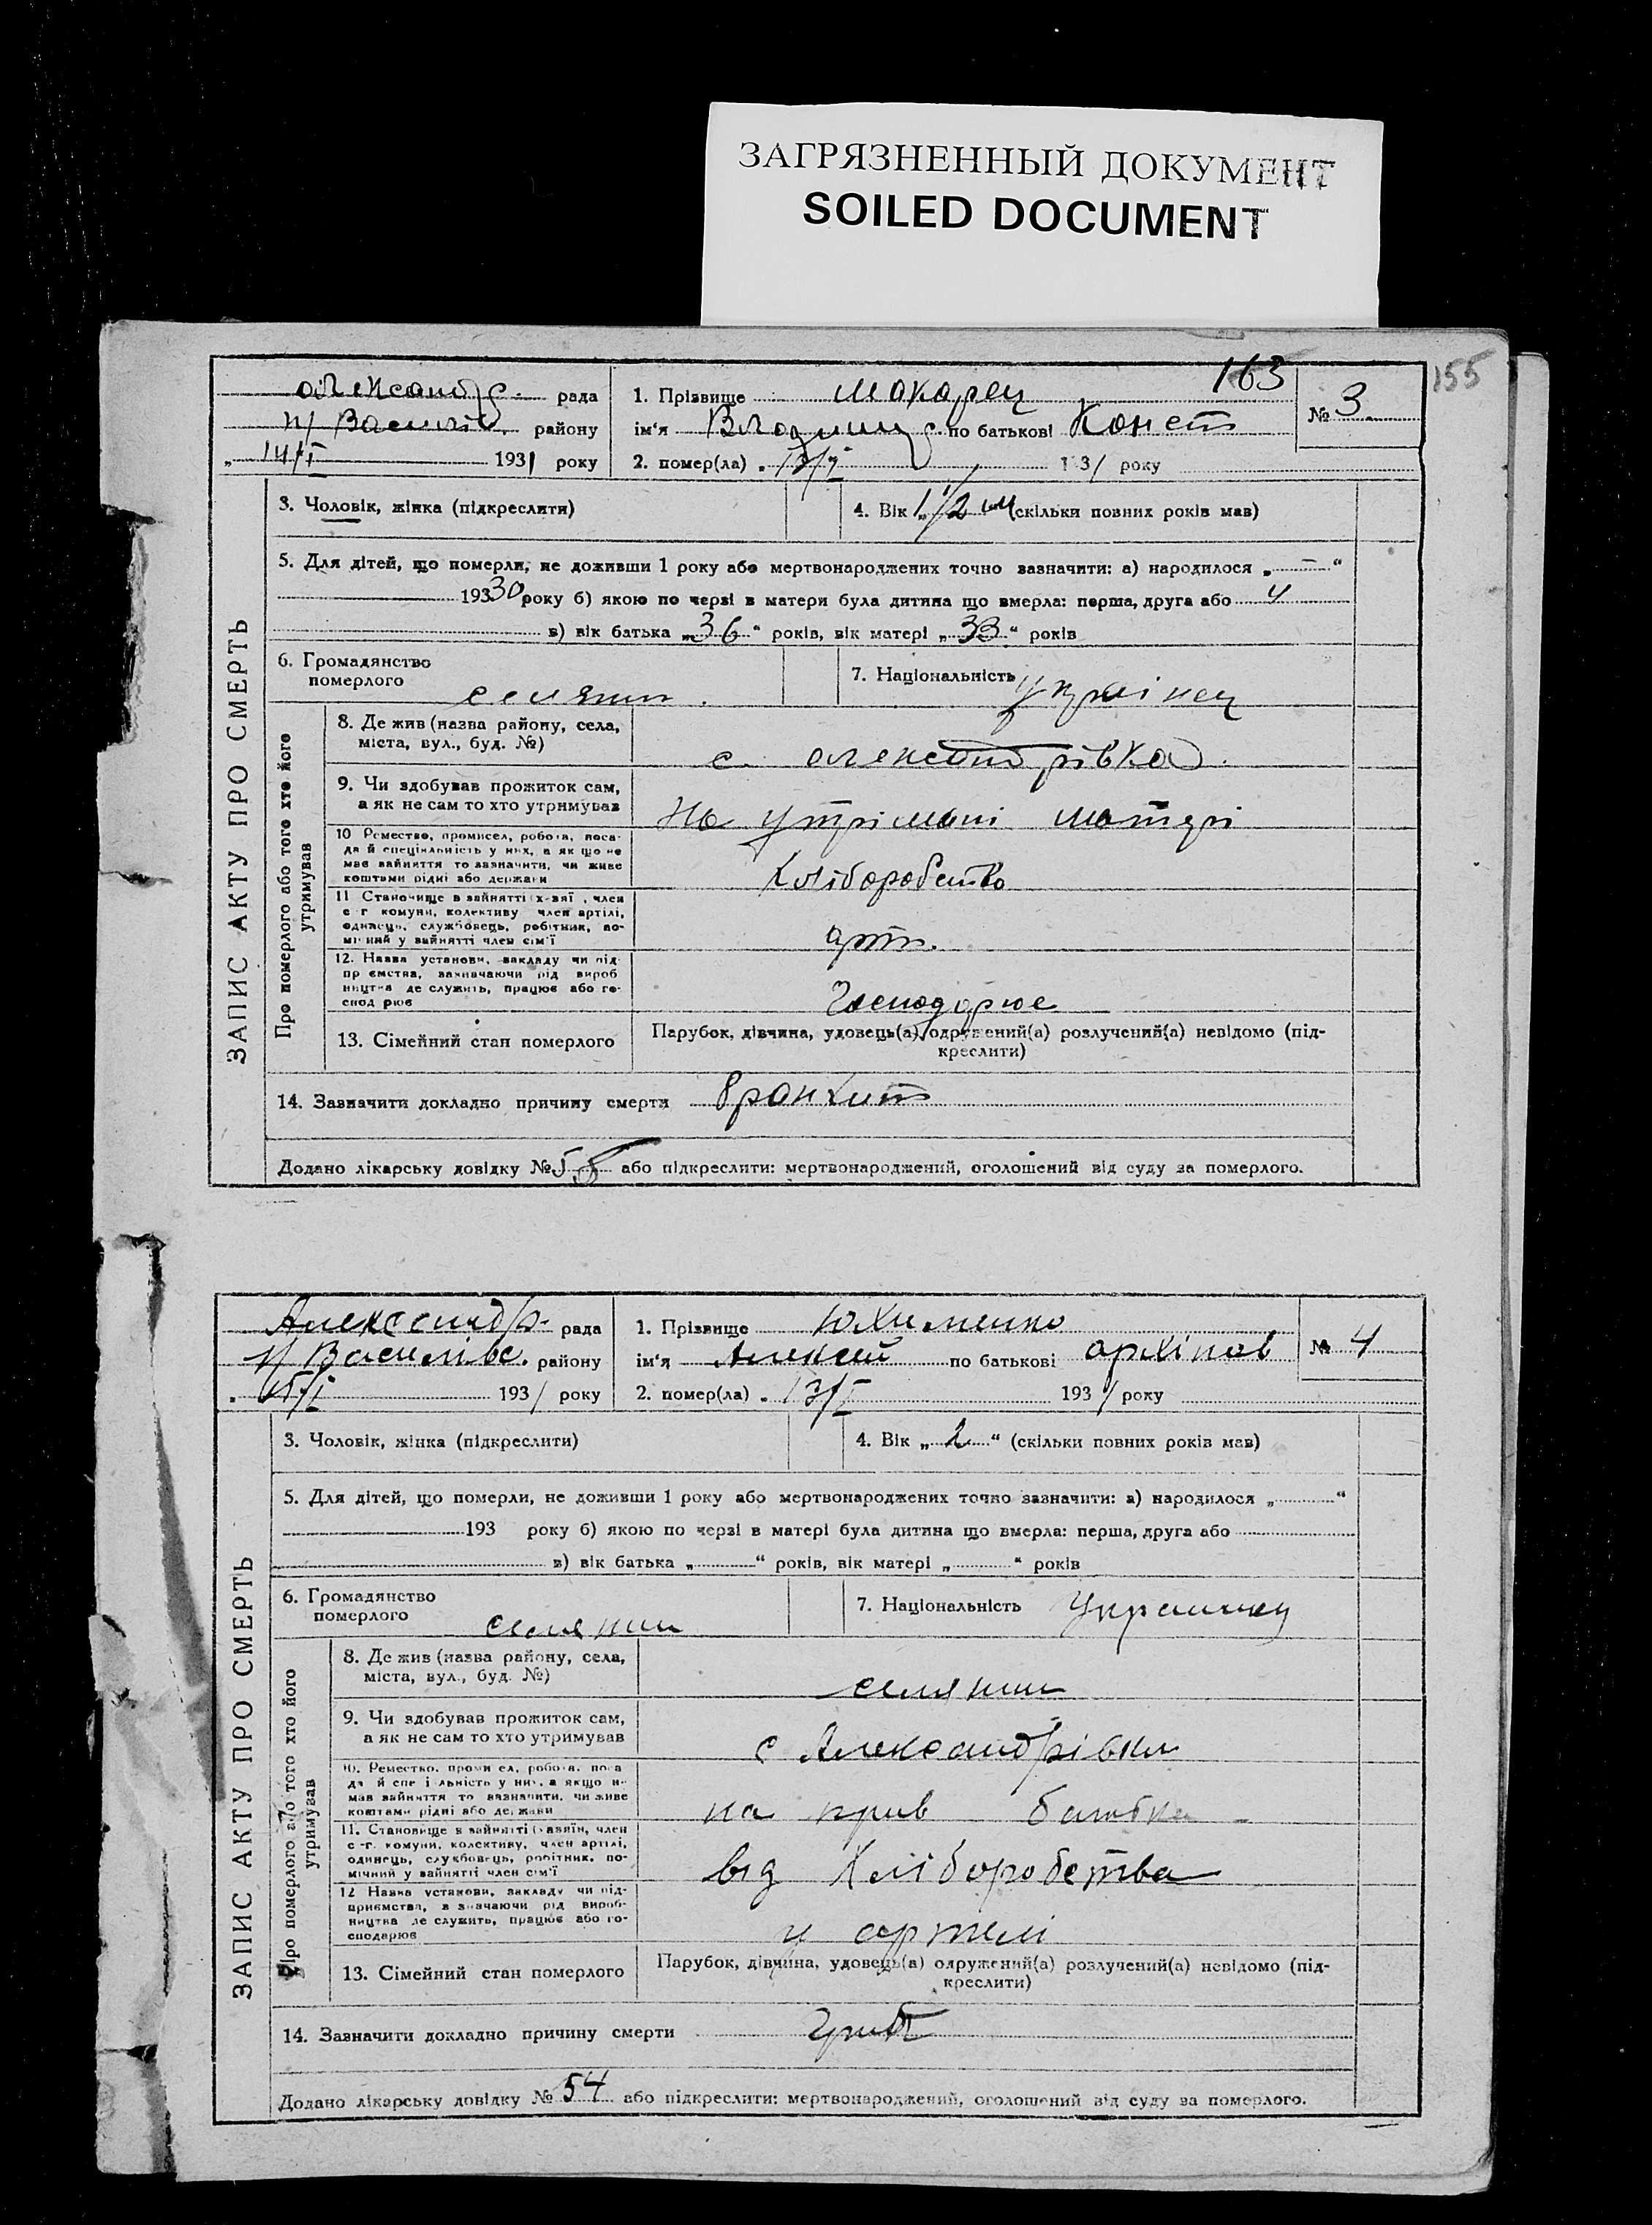 ЗАГРЯЗНЕННЫЙ ДОКУМЕНТ
SOILED DOCUMENT
155
163
Олександр. рада
н/Василів. району
„ 14/I 1931 року
1. Прізвище Макарец
ім'я Владимир по батькові Конст
2. помер(ла) „ 13/I 1931 року
№ 3
ЗАПИС АКТУ ПРО СМЕРТЬ
3. Чоловік, жінка (підкреслити)
4. Вік 1 1/2 (скільки повних років мав)
5. Для дітей, що померли, не доживши 1 року або мертвонароджених точно зазначити: а) народилося „ – “
19330 року б) якою по черзі в матери була дитина що вмерла: перша, друга або 4
в) вік батька „36“ років, вік матері „33“ років
6. Громадянство
померлого селянин.
7. Національність Українец
Про померлого або того хто його
утримував
8. Де жив (назва району, села,
міста, вул., буд. №)
с. Олександрівка
9. Чи здобував прожиток сам,
а як не сам то хто утримував
На утрімані матері
10 Ремество, промисел, робота, поса-
да й спеціяльність у них, а якщо не
мав зайняття то зазначити, чи живе
коштами рідні або держави
Хліборобство
11 Становище в зайнятті (х-вяї, член
с-г комуни, колективу член артілі,
одинець, службовець, робітник, по-
мічний у зайнятті член сім'ї
арт.
12. Назва установи, закладу чи під
приємства, зазначаючи рід вироб
ництва де служить, працює або го-
сподарює
Господарює
13. Сімейний стан померлого
Парубок, дівчина, удовець(а), одружений(а) розлучений(а) невідомо (під-
креслити)
14. Зазначити докладно причину смерти Бронхит
Додано лікарську довідку № 58 або підкреслити: мертвонароджений, оголошений від суду за померлого.
Александр. рада
н/Василівс. району
„ 15/I 1931 року
1. Прізвище Юхименко
ім'я Алексей по батькові Архіпов
2. помер(ла) „ 13/I 1931 року
№ 4
ЗАПИС АКТУ ПРО СМЕРТЬ
3. Чоловік, жінка (підкреслити)
4. Вік „2“ (скільки повних років мав)
5. Для дітей, що померли, не доживши 1 року або мертвонароджених точно зазначити: а) народилося „ “
193 року б) якою по черзі в матері була дитина що вмерла: перша, друга або
в) вік батька „ “ років, вік матері „ “ років
6. Громадянство
померлого селянин
7. Національність Украинец
Про померлого або того хто його
утримував
8. Де жив (назва району, села,
міста, вул., буд. №)
селянин
9. Чи здобував прожиток сам,
а як не сам то хто утримував
с Александрівки
10. Ремество, промисел, робота, поса
да й спеціяльність у них, а якщо не
мав зайняття то зазначити, чи живе
коштами рідні або держави
на прив батька
11. Становище в зайнятті (хазяїн, член
с-г. комуни, колективу, член артілі,
одинець, службовець, робітник, по-
мічний у зайнятті член сім'ї
від Хліборобства
12 Назва установи, закладу чи під-
приємства, зазначаючи рід вироб-
ництва де служить, працює або го-
сподарює
у артелі
13. Сімейний стан померлого
Парубок, дівчина, удовець(а) одружений(а) розлучений(а) невідомо (під-
креслити)
14. Зазначити докладно причину смерти Грип
Додано лікарську довідку № 54 або підкреслити: мертвонароджений, оголошений від суду за померлого.